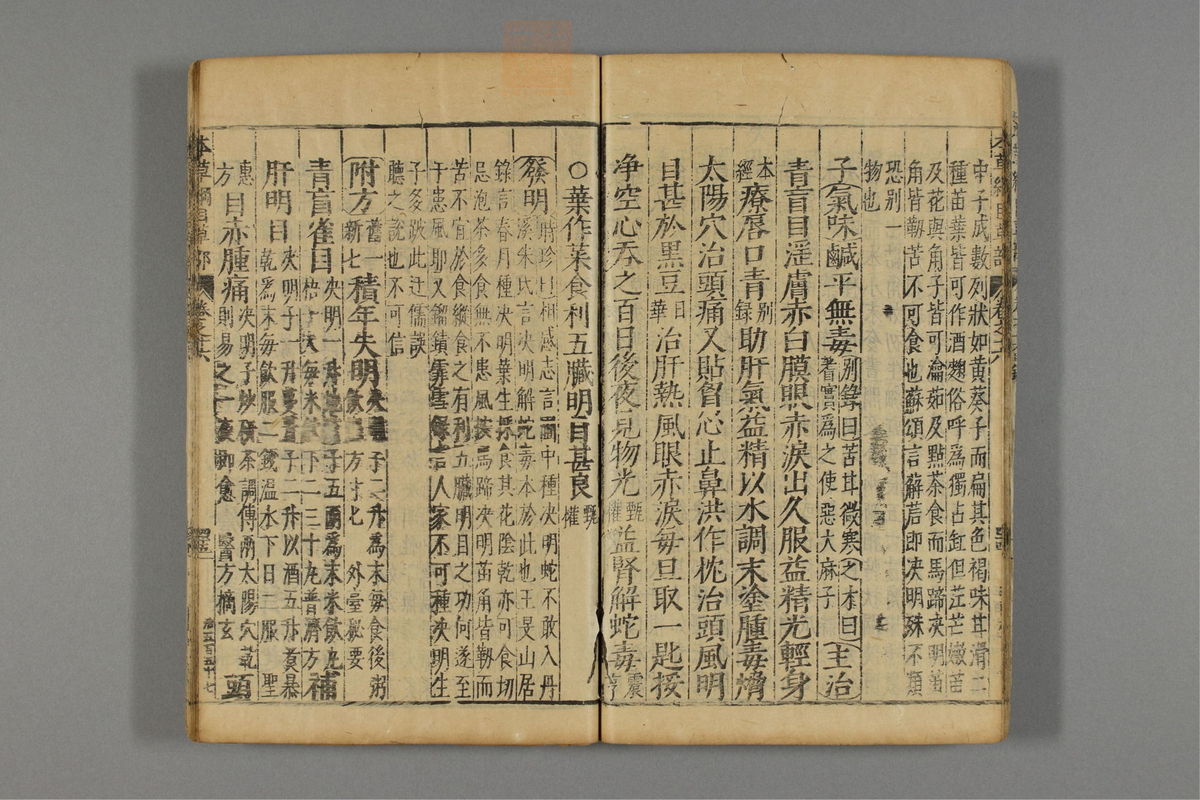 中子成數列狀如黃葵子而扁其色褐味甘滑二
種苗葉皆可作酒麴俗呼為獨占缸但茳芒嫩苗
及花與角子皆可瀹茹及點茶食而馬蹄决明苗
角皆韌苦不可食也蘇頌言薢茩即决明殊不類
恐别一
物也
子氣味鹹平無毒别錄曰苦甘微寒之才曰
蓍實為之使惡大麻子
主治
青盲目淫膚赤白膜眼赤淚出久服益精光輕身
本經療唇口青别錄助肝氣益精以水調末塗腫毒熁
太陽穴治頭痛又貼𦙄心止鼻洪作枕治頭風明
目甚於黑豆日華治肝熱風眼赤淚每旦取一匙挼
净空心吞之百日後夜見物光甄權益腎解蛇毒震亨
○葉作菜食利五臟明目甚良甄權
發明時珍曰相感志言圃中種决明蛇不敢入丹
溪朱氏言决明解蛇毒本於此也王旻山居
錄言春月種决明葉生採食其花陰乾亦可食切
忌泡茶多食無不患風按馬蹄决明苗角皆韌而
苦不宜於食縱食之有利五臟明目之功何遂至
于患風耶又鎦績霏雪錄言人家不可種决明生
子多跛此迂儒誤
聽之說也不可信
附方舊一新七積年失明子二升為末每食後粥
方寸七 外臺秘要
青盲雀目决明一升地膚子五兩為末米飲丸
梧子大每米飲下二三十丸普濟方
補
肝明目决明子一升蔓菁子二升以酒五升煮暴
乾為末每飲服二錢溫水下日二服聖
惠方目赤腫痛决明子炒研茶調傅兩太陽穴乾
則易之一夜即愈 醫方摘玄
頭
本草綱目草部
卷之十六